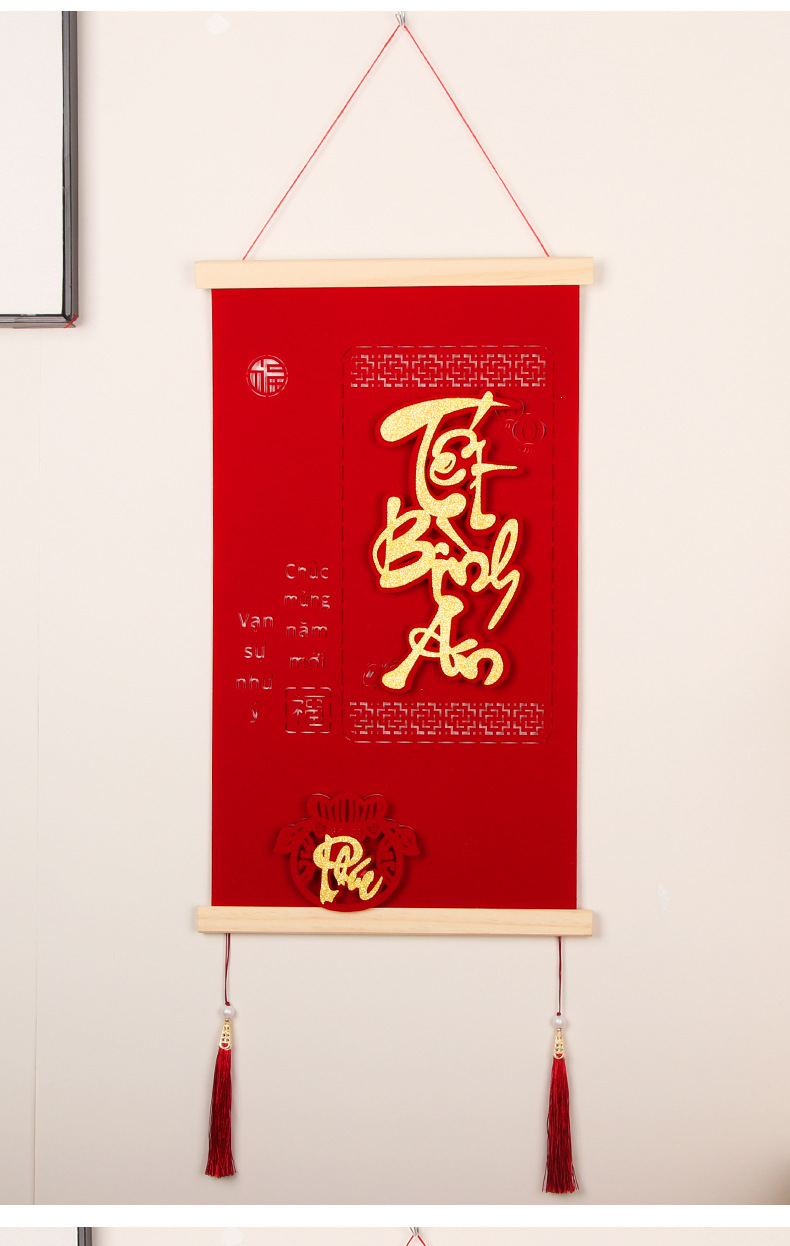 福
Tết
Bình
An
Chúc
mừng
năm
mới
Vạn
sự
như
ý
福
Phúc